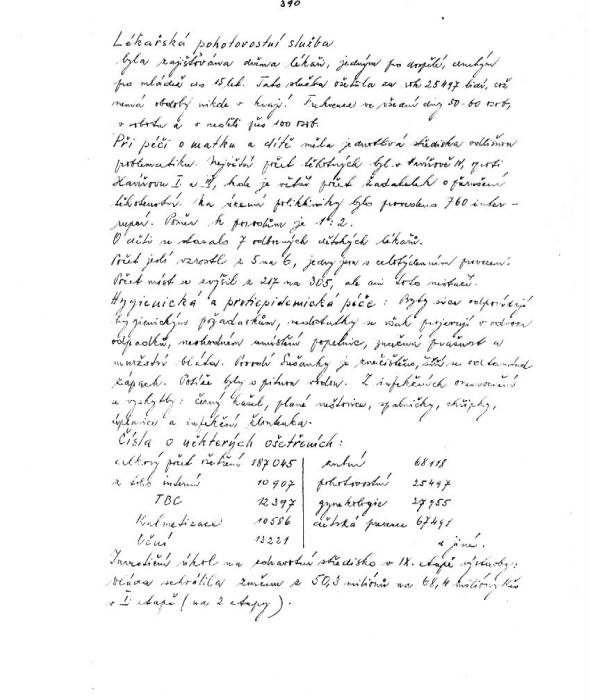 390
Lékařská pohotovostní služba
byla zajišťována dvěma lékaři, jedným pro dospělé, druhým
pro mládež do 15 let. Tato služba ošetřila za rok 25497 lidí, což
nemá obdoby nikde v kraji! Frekvence ve všední dny 50-60 osob,
v sobotu a v neděli přes 100 osob.
Při péči o matku a dítě měla jednotlivá střediska odlišnou
problematiku. Největší počet těhotných byl v Havířově IV, proti
Havířovu I a II, kde je větší počet žadatelek o přerušení
těhotenství. Na území polikliniky bylo provedeno 760 inter-
rupcí. Poměr k porodům je 1:2.
O děti se staralo 7 odborných dětských lékařů.
Počet jeslí vzrostl z 5 na 6, jedny jsou s celotýdenním provozem.
Počet míst se zvýšil z 217 na 305, ale ani toto nestačí.
Hygienická a protiepidemická péče: Byty sice odpovídají
hygienickým požadavkům, nedostatky se však projevují v odvozu
odpadků, nevhodném umístění popelnic, značná prašnost a
množství bláta. Ovzduší Sušanky je znečištěno,
zápach. Potíže byly s pitnou vodou. Z infekčních onemocnění
se vyskytly: černý kašel, plané neštovice, spalničky, chřipky,
úplavice a infekční žloutenka.
Čísla o některých ošetřeních:
celkový počet ošetření 187045 zubní 68118
z toho interní 10907 pohotovostní 25497
TBC 12397 gynekologie 27955
Kalmetizace 10586 dětská poradna 67491
Oční 13221 a jiné.
Investiční úkol na zdravotní středisko v IX. etapě výstavby:
vláda schválila změnu z 50,3 milionů na 68,4 miliony Kčs
v I. etapě (na 2 etapy).